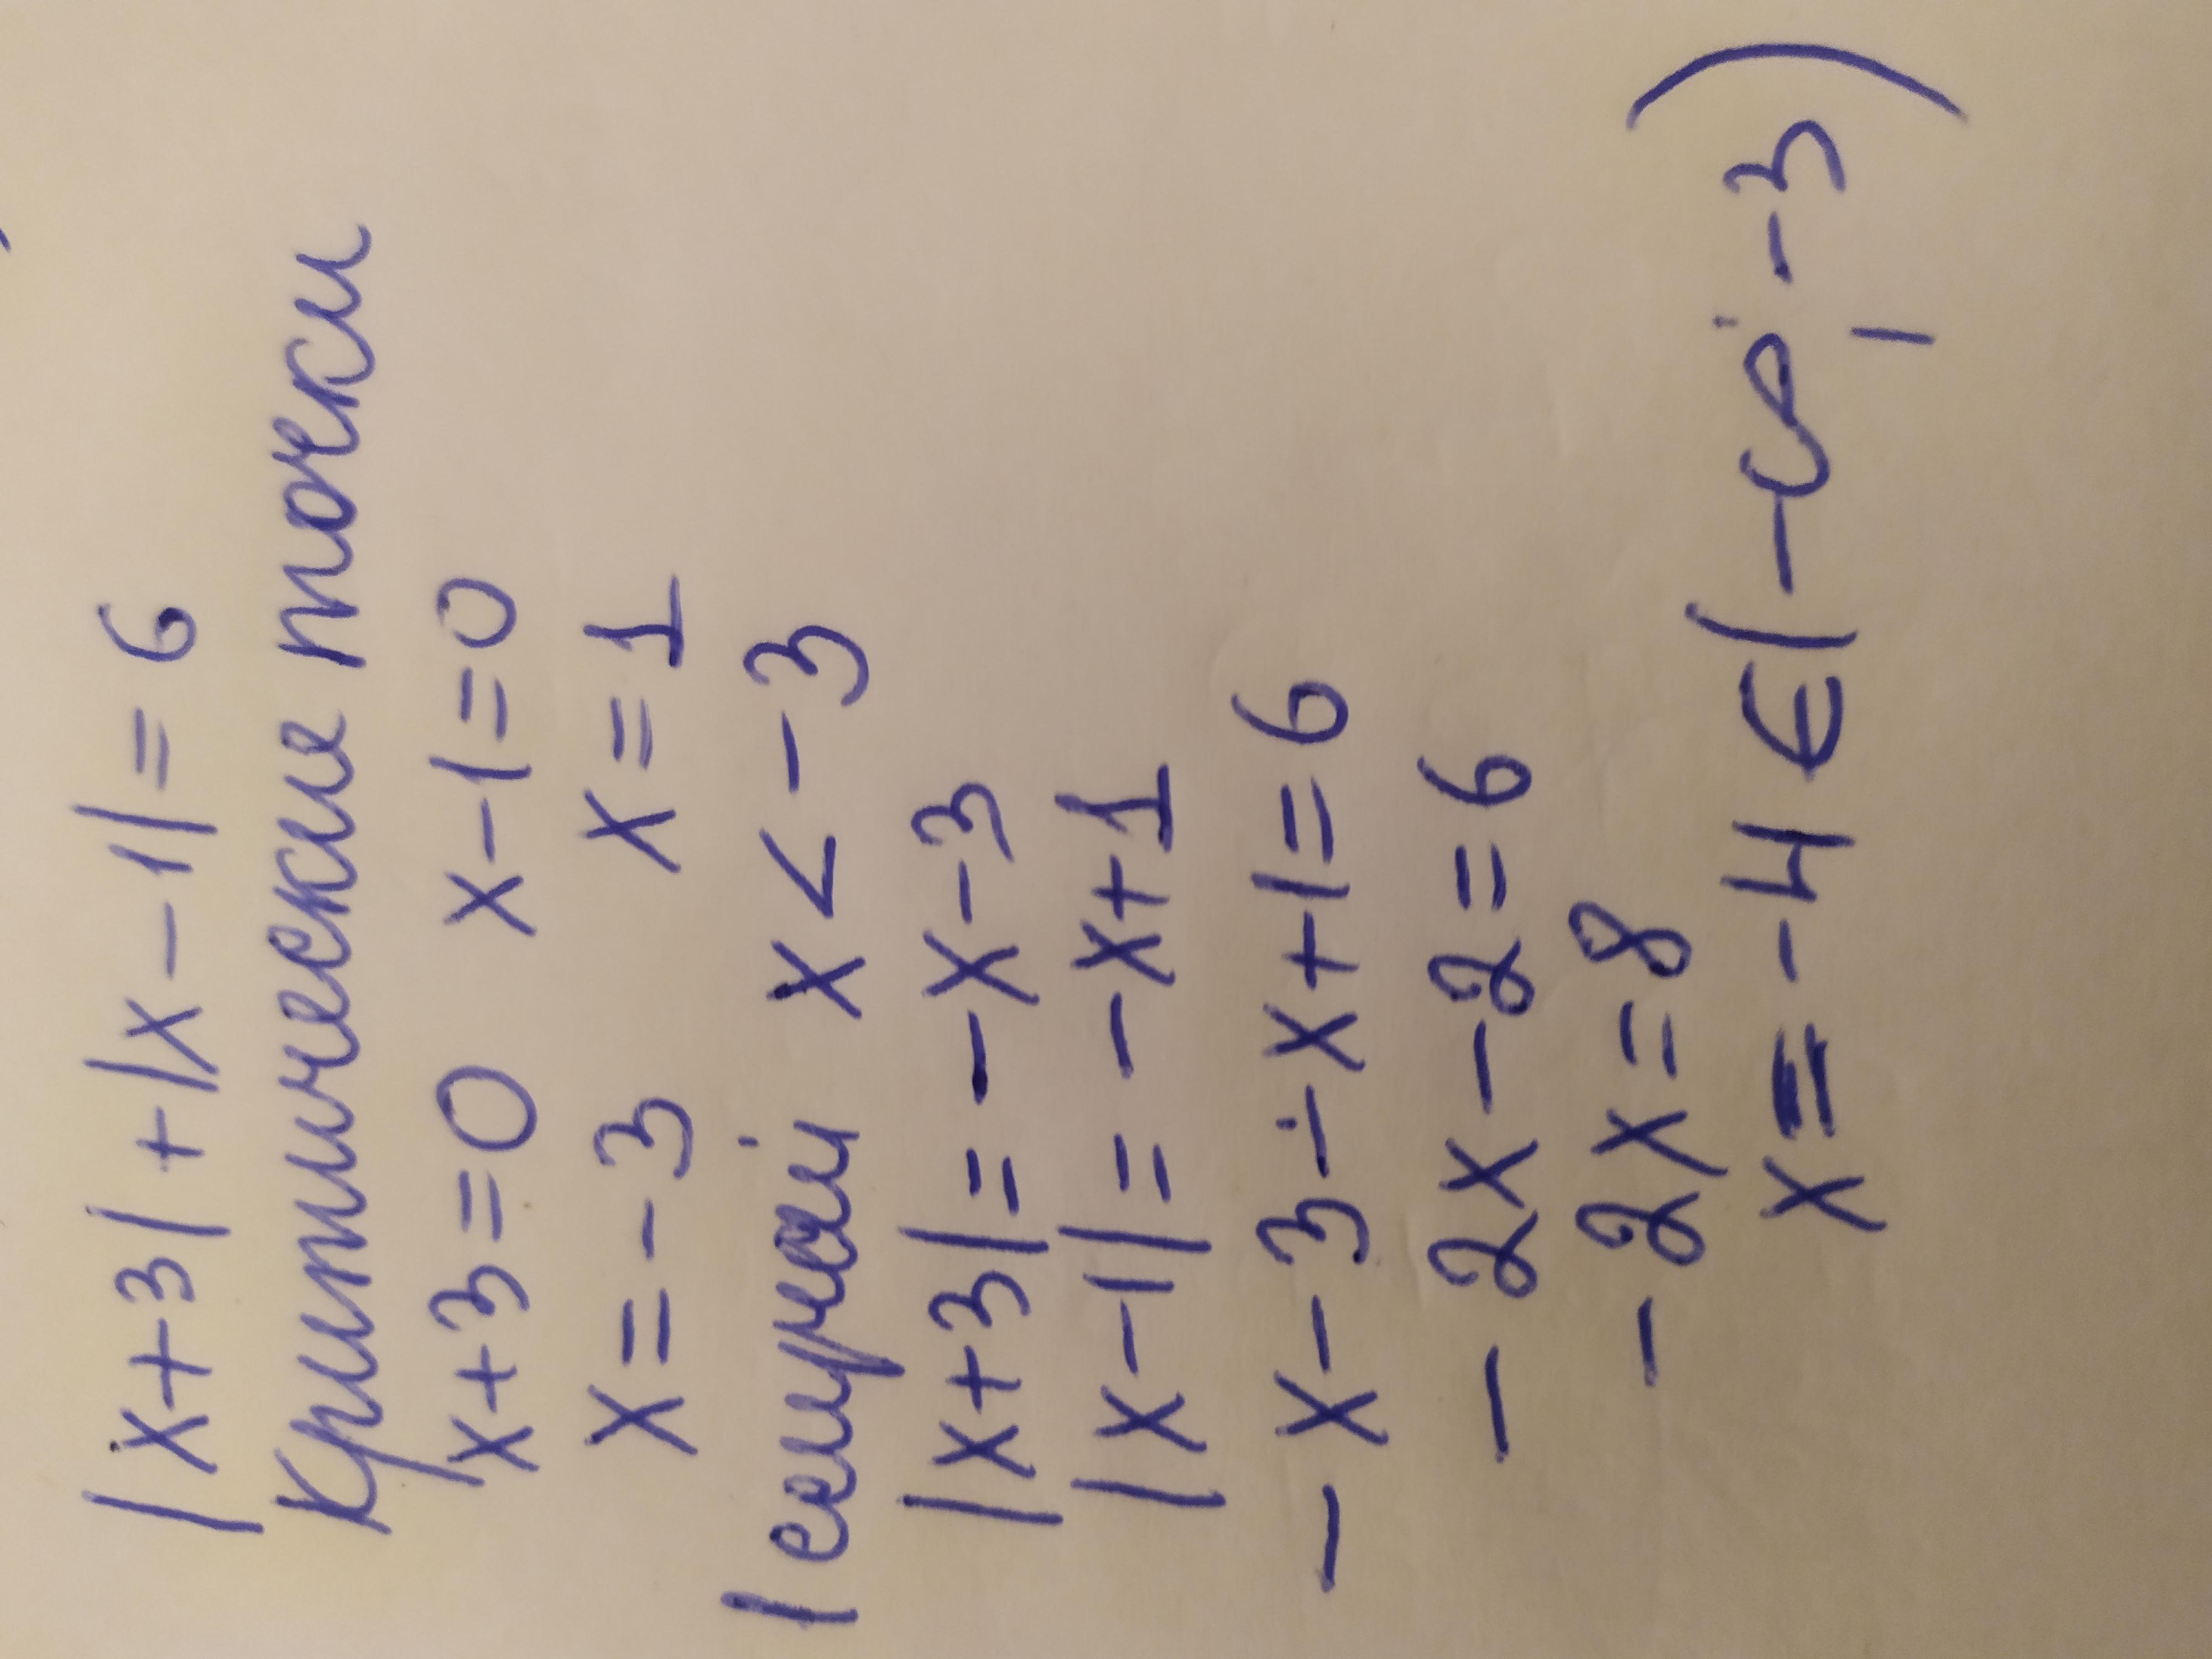 |x+3|+|x-1|=6
Критические точки
x+3=0 x-1=0
x=-3 x=1
1 случай x<-3
|x+3|=-x-3
|x-1|=-x+1
-x-3-x+1=6
-2x-2=6
-2x=8
x=-4∈(-∞;-3)